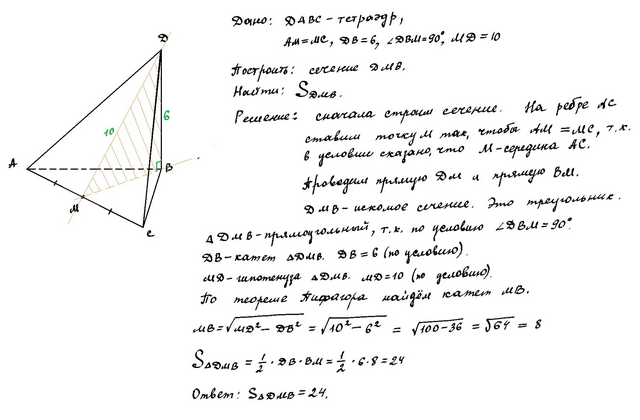 Дано: DABC - тетраэдр,
AM=MC, DB=6, ∠DBM=90°, MD=10
Построить: сечение DMB.
Найти: S_DMB.
Решение: сначала строим сечение. На ребре AC
ставим точку M так, чтобы AM=MC, т.к.
в условии сказано, что M-середина AC.
Проводим прямую DM и прямую BM.
DMB-искомое сечение. Это треугольник.
△DMB-прямоугольный, т.к. по условию ∠DBM=90°.
DB-катет △DMB. DB=6 (по условию).
MD-гипотенуза △DMB. MD=10 (по условию).
По теореме Пифагора найдём катет MB.
MB=√(MD²-DB²) = √(10²-6²) = √(100-36) = √64 = 8
S△DMB = 1/2 · DB · BM = 1/2 · 6 · 8 = 24
Ответ: S△DMB = 24.
D
10
6
A
B
M
C